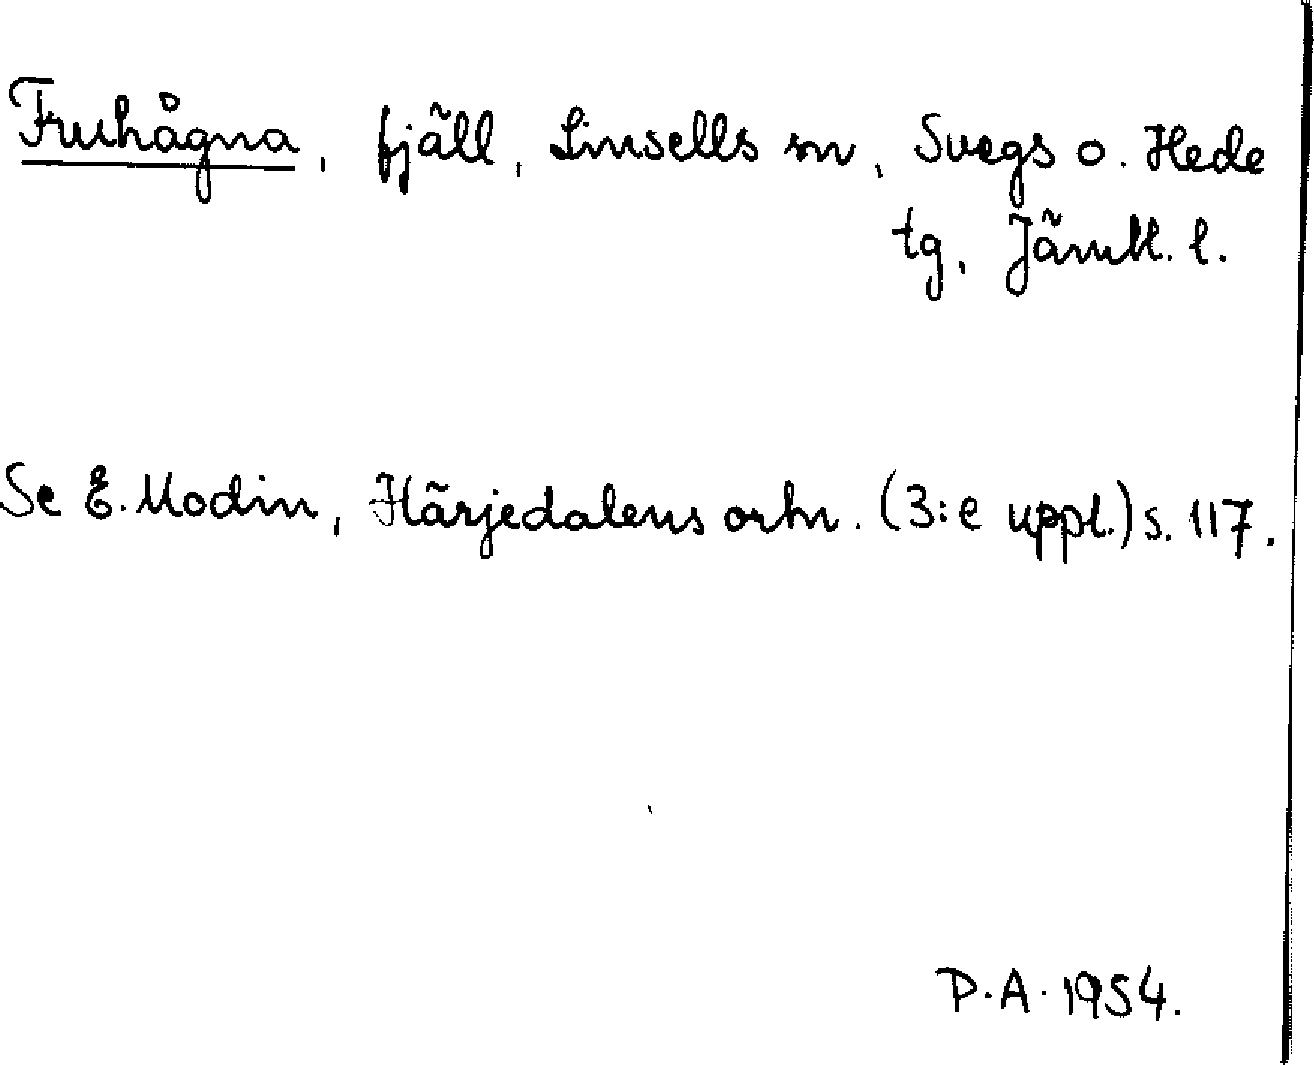 Fruhågna, fjäll, Linsells sn, Svegs o. Hede
tg, Jämtl. l.
Se E. Modin, Härjedalens ortn. (3:e uppl.) s. 117.
P.A. 1954.